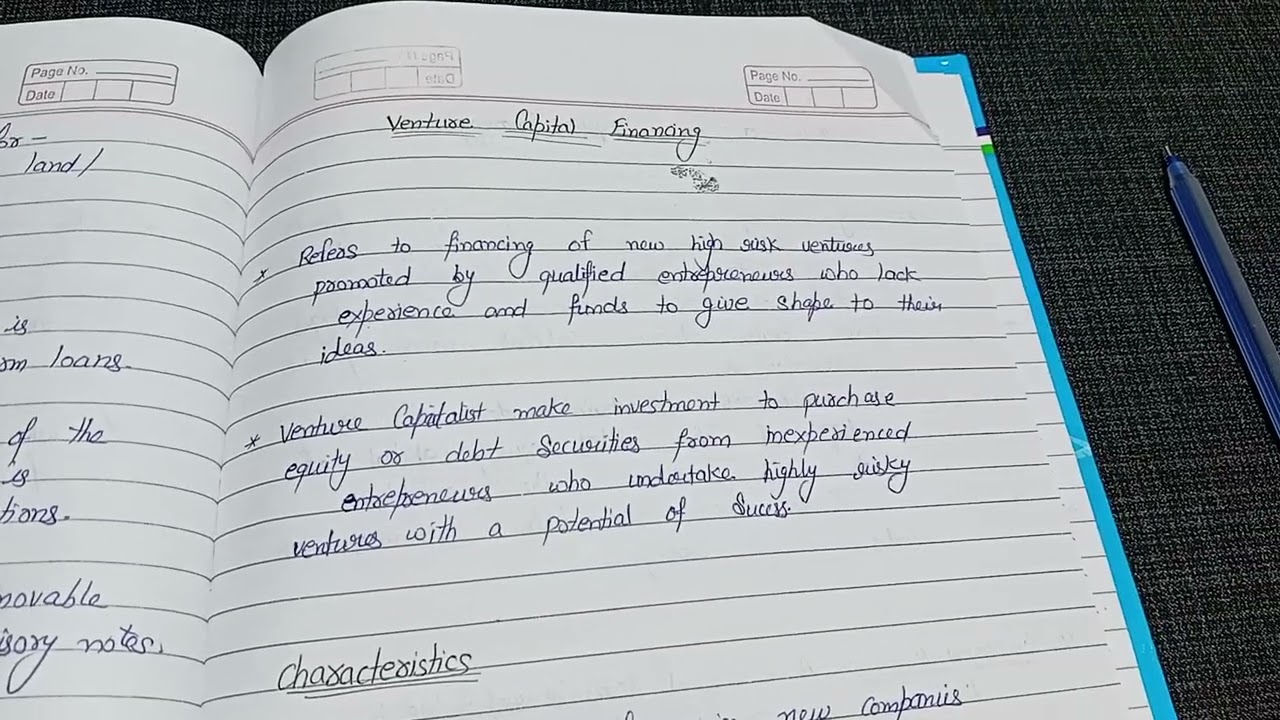 Page No.
Date
for -
land/
is
om loans.
of the
is
tions.
novable
isory notes.
Page No.
Date
Venture Capital Financing
* Refers to financing of new high risk ventures
promoted by qualified entrepreneurs who lack
experience and funds to give shape to their
ideas.
* Venture Capitalist make investment to purchase
equity or debt securities from inexperienced
entrepreneurs who undertake highly risky
ventures with a potential of Sucess.
Characteristics
new companies